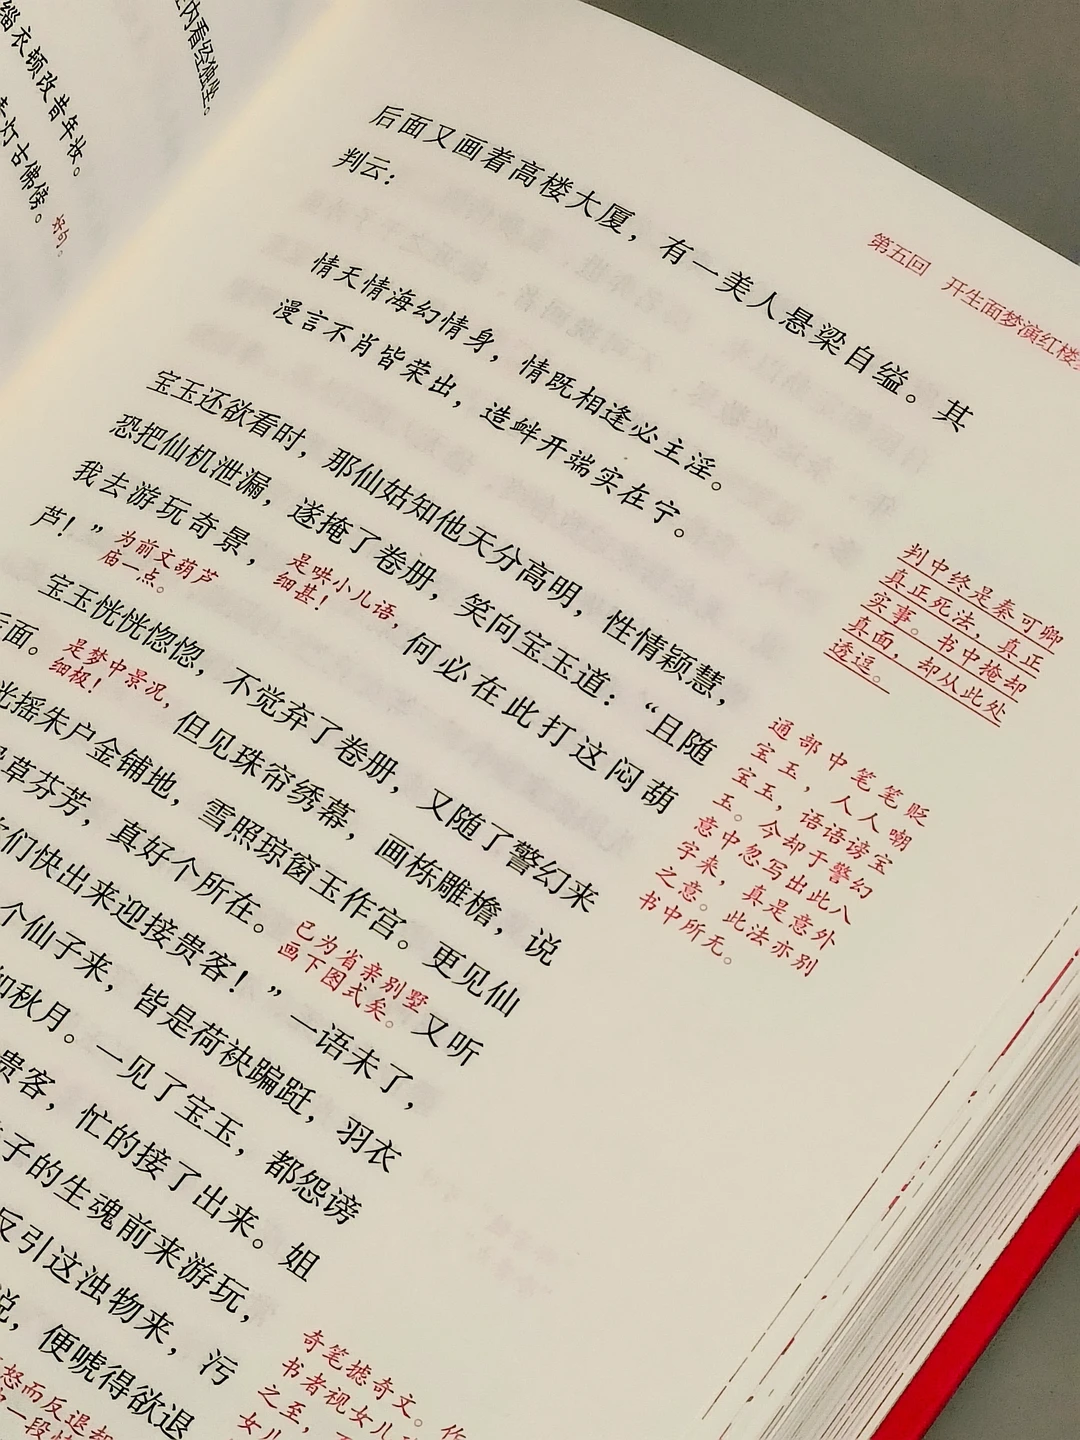 缁衣顿改昔年妆。
灯古佛傍。好句。
内看经独坐。
第五回 开生面梦演红楼
后面又画着高楼大厦，有一美人悬梁自缢。其
判云：
情天情海幻情身，情既相逢必主淫。
漫言不肖皆荣出，造衅开端实在宁。
宝玉还欲看时，那仙姑知他天分高明，性情颖慧，
恐把仙机泄漏，遂掩了卷册，笑向宝玉道：“且随
我去游玩奇景，是哄小儿语，细甚！何必在此打这闷葫
芦！”为前文葫芦庙一点。
宝玉恍恍惚惚，不觉弃了卷册，又随了警幻来
后面。是梦中景况，细极！但见珠帘绣幕，画栋雕檐，说
光摇朱户金铺地，雪照琼窗玉作宫。更见仙
草芬芳，真好个所在。已为省亲别墅画下图式矣。又听
们快出来迎接贵客！”一语未了，
个仙子来，皆是荷袂蹁跹，羽衣
如秋月。一见了宝玉，都怨谤
贵客，忙的接了出来。姐
子的生魂前来游玩，
反引这浊物来，污
说，便唬得欲退
怒而反退却
一段
判中终是秦可卿
真正死法，真正
实事。书中掩却
真面，却从此处
透逗。
通部中笔笔贬
宝玉，人人嘲
宝玉，语语谤宝
玉。今却于警幻
意中忽写出此八
字来，真是意外
之意。此法亦别
书中所无。
奇笔摅奇文。作
书者视女儿
之至，
女儿